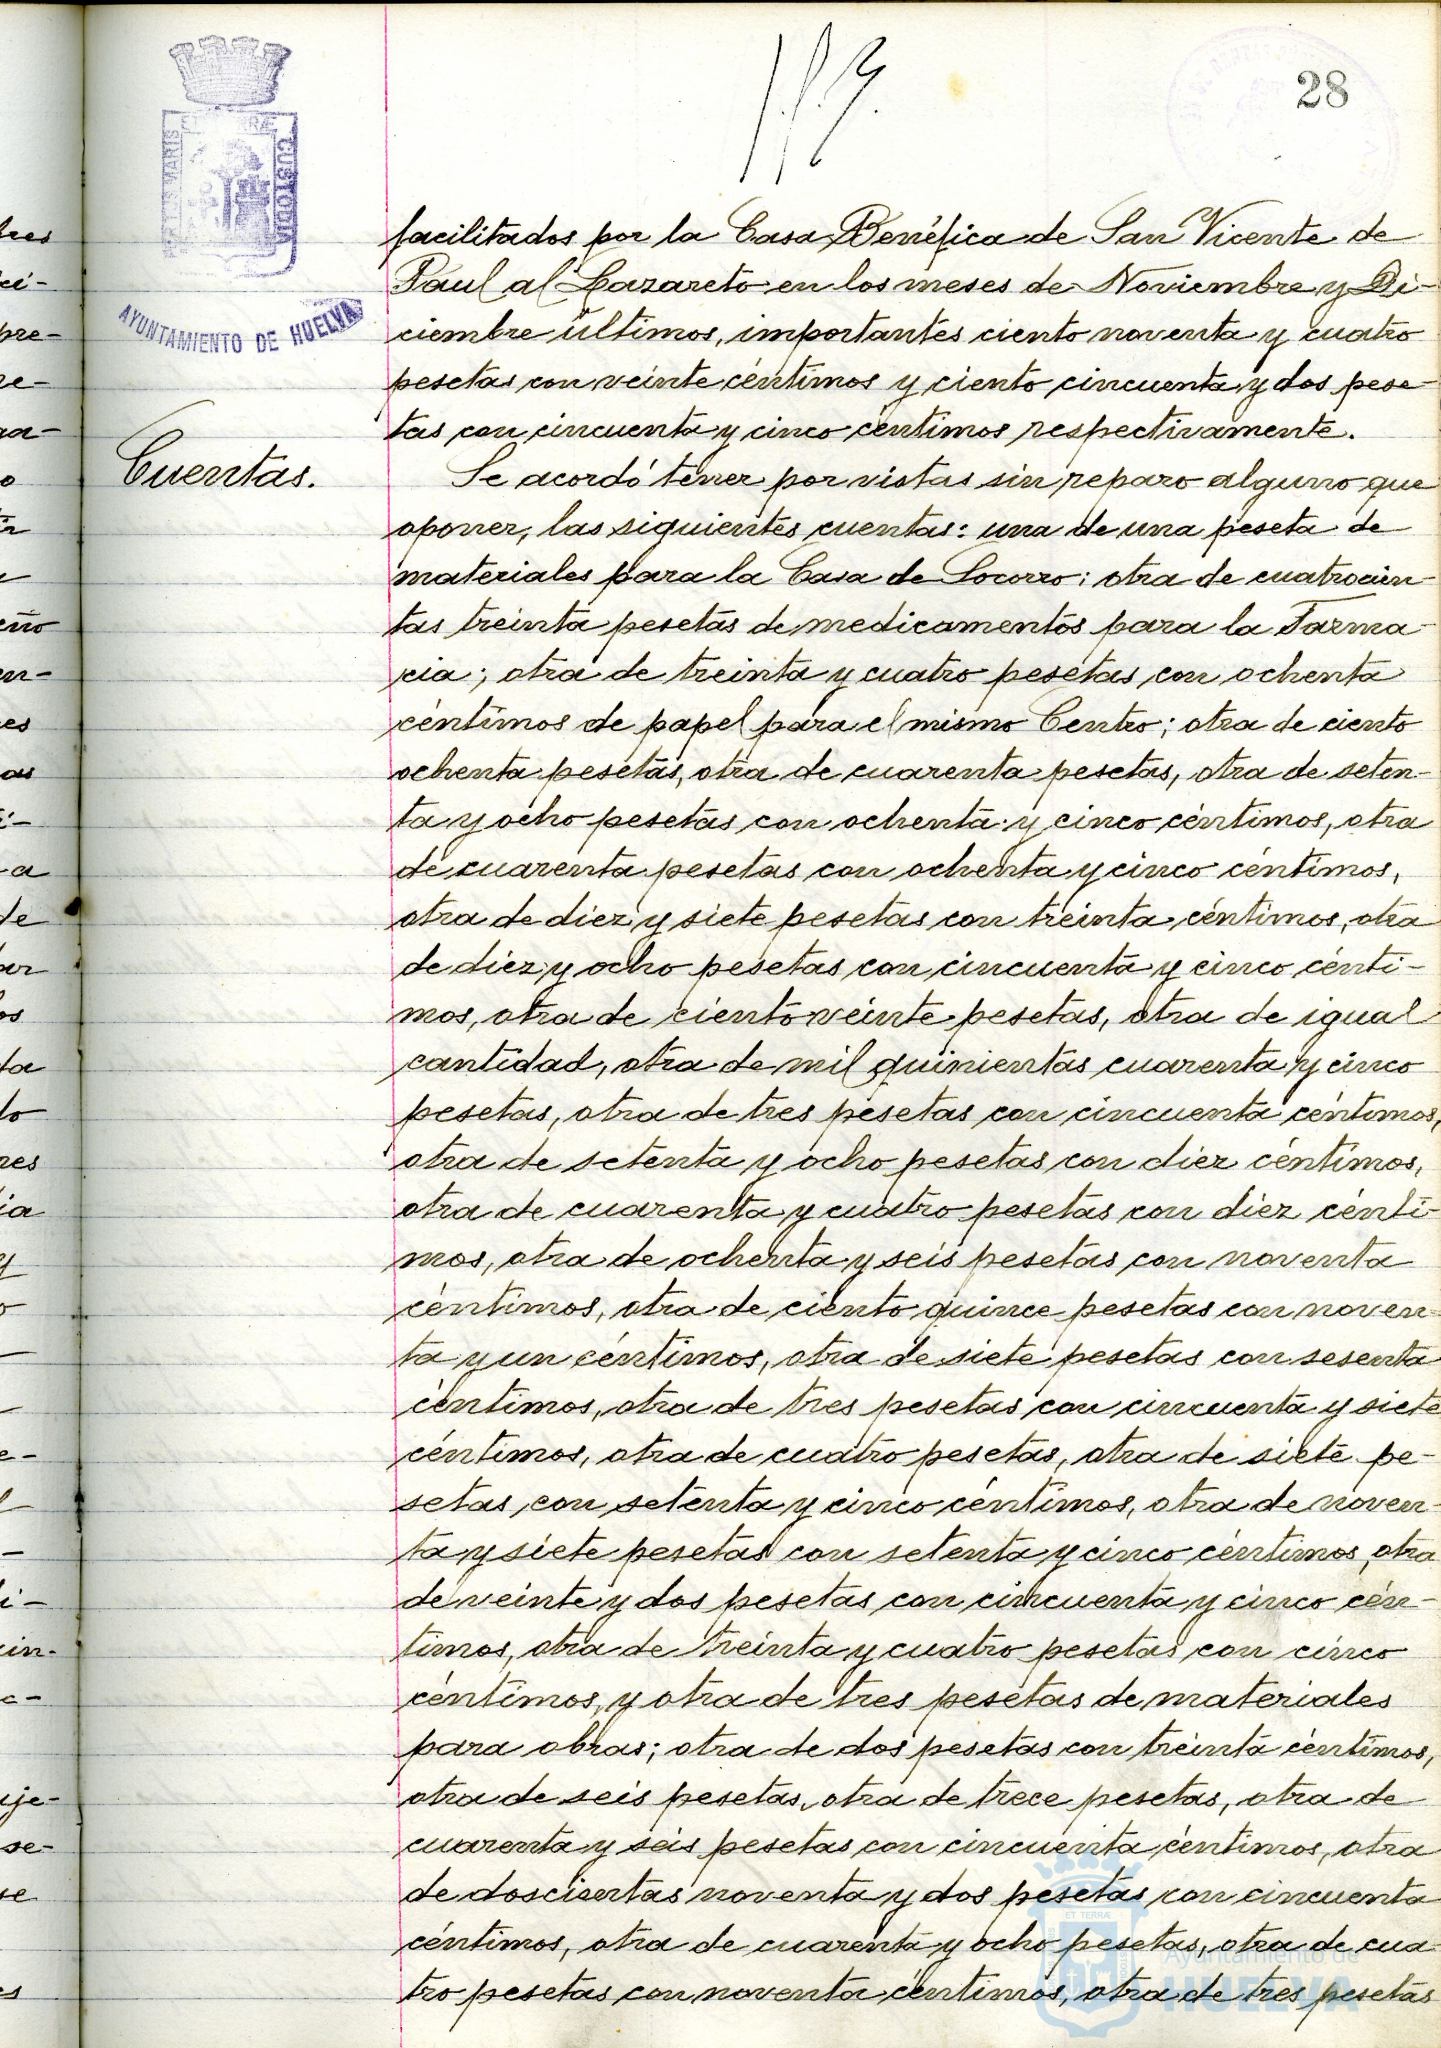 28
PORTUS MARIS ET TERRÆ CUSTODIA
AYUNTAMIENTO DE HUELVA
facilitados por la Casa Benéfica de San Vicente de
Paul al Lazareto en los meses de Noviembre y Di-
ciembre últimos, importantes ciento noventa y cuatro
pesetas con veinte céntimos y ciento cincuenta y dos pese-
tas con cincuenta y cinco céntimos respectivamente.
Cuentas.
Se acordó tener por vistas sin reparo alguno que
oponer, las siguientes cuentas: una de una peseta de
materiales para la Casa de Socorro; otra de cuatrocien-
tas treinta pesetas de medicamentos para la Farma-
cia; otra de treinta y cuatro pesetas con ochenta
céntimos de papel para el mismo Centro; otra de ciento
ochenta pesetas, otra de cuarenta pesetas, otra de seten-
ta y ocho pesetas con ochenta y cinco céntimos, otra
de cuarenta pesetas con ochenta y cinco céntimos,
otra de diez y siete pesetas con treinta céntimos, otra
de diez y ocho pesetas con cincuenta y cinco cénti-
mos, otra de ciento veinte pesetas, otra de igual
cantidad, otra de mil quinientas cuarenta y cinco
pesetas, otra de tres pesetas con cincuenta céntimos,
otra de setenta y ocho pesetas con diez céntimos,
otra de cuarenta y cuatro pesetas con diez cénti-
mos, otra de ochenta y seis pesetas con noventa
céntimos, otra de ciento quince pesetas con noven-
ta y un céntimos, otra de siete pesetas con sesenta
céntimos, otra de tres pesetas con cincuenta y siete
céntimos, otra de cuatro pesetas, otra de siete pe-
setas con setenta y cinco céntimos, otra de noven-
ta y siete pesetas con setenta y cinco céntimos, otra
de veinte y dos pesetas con cincuenta y cinco cén-
timos, otra de treinta y cuatro pesetas con cinco
céntimos, y otra de tres pesetas de materiales
para obras; otra de dos pesetas con treinta céntimos,
otra de seis pesetas, otra de trece pesetas, otra de
cuarenta y seis pesetas con cincuenta céntimos, otra
de doscientas noventa y dos pesetas con cincuenta
céntimos, otra de cuarenta y ocho pesetas, otra de cua-
tro pesetas con noventa céntimos, otra de tres pesetas
ET TERRÆ
Ayuntamiento de
HUELVA